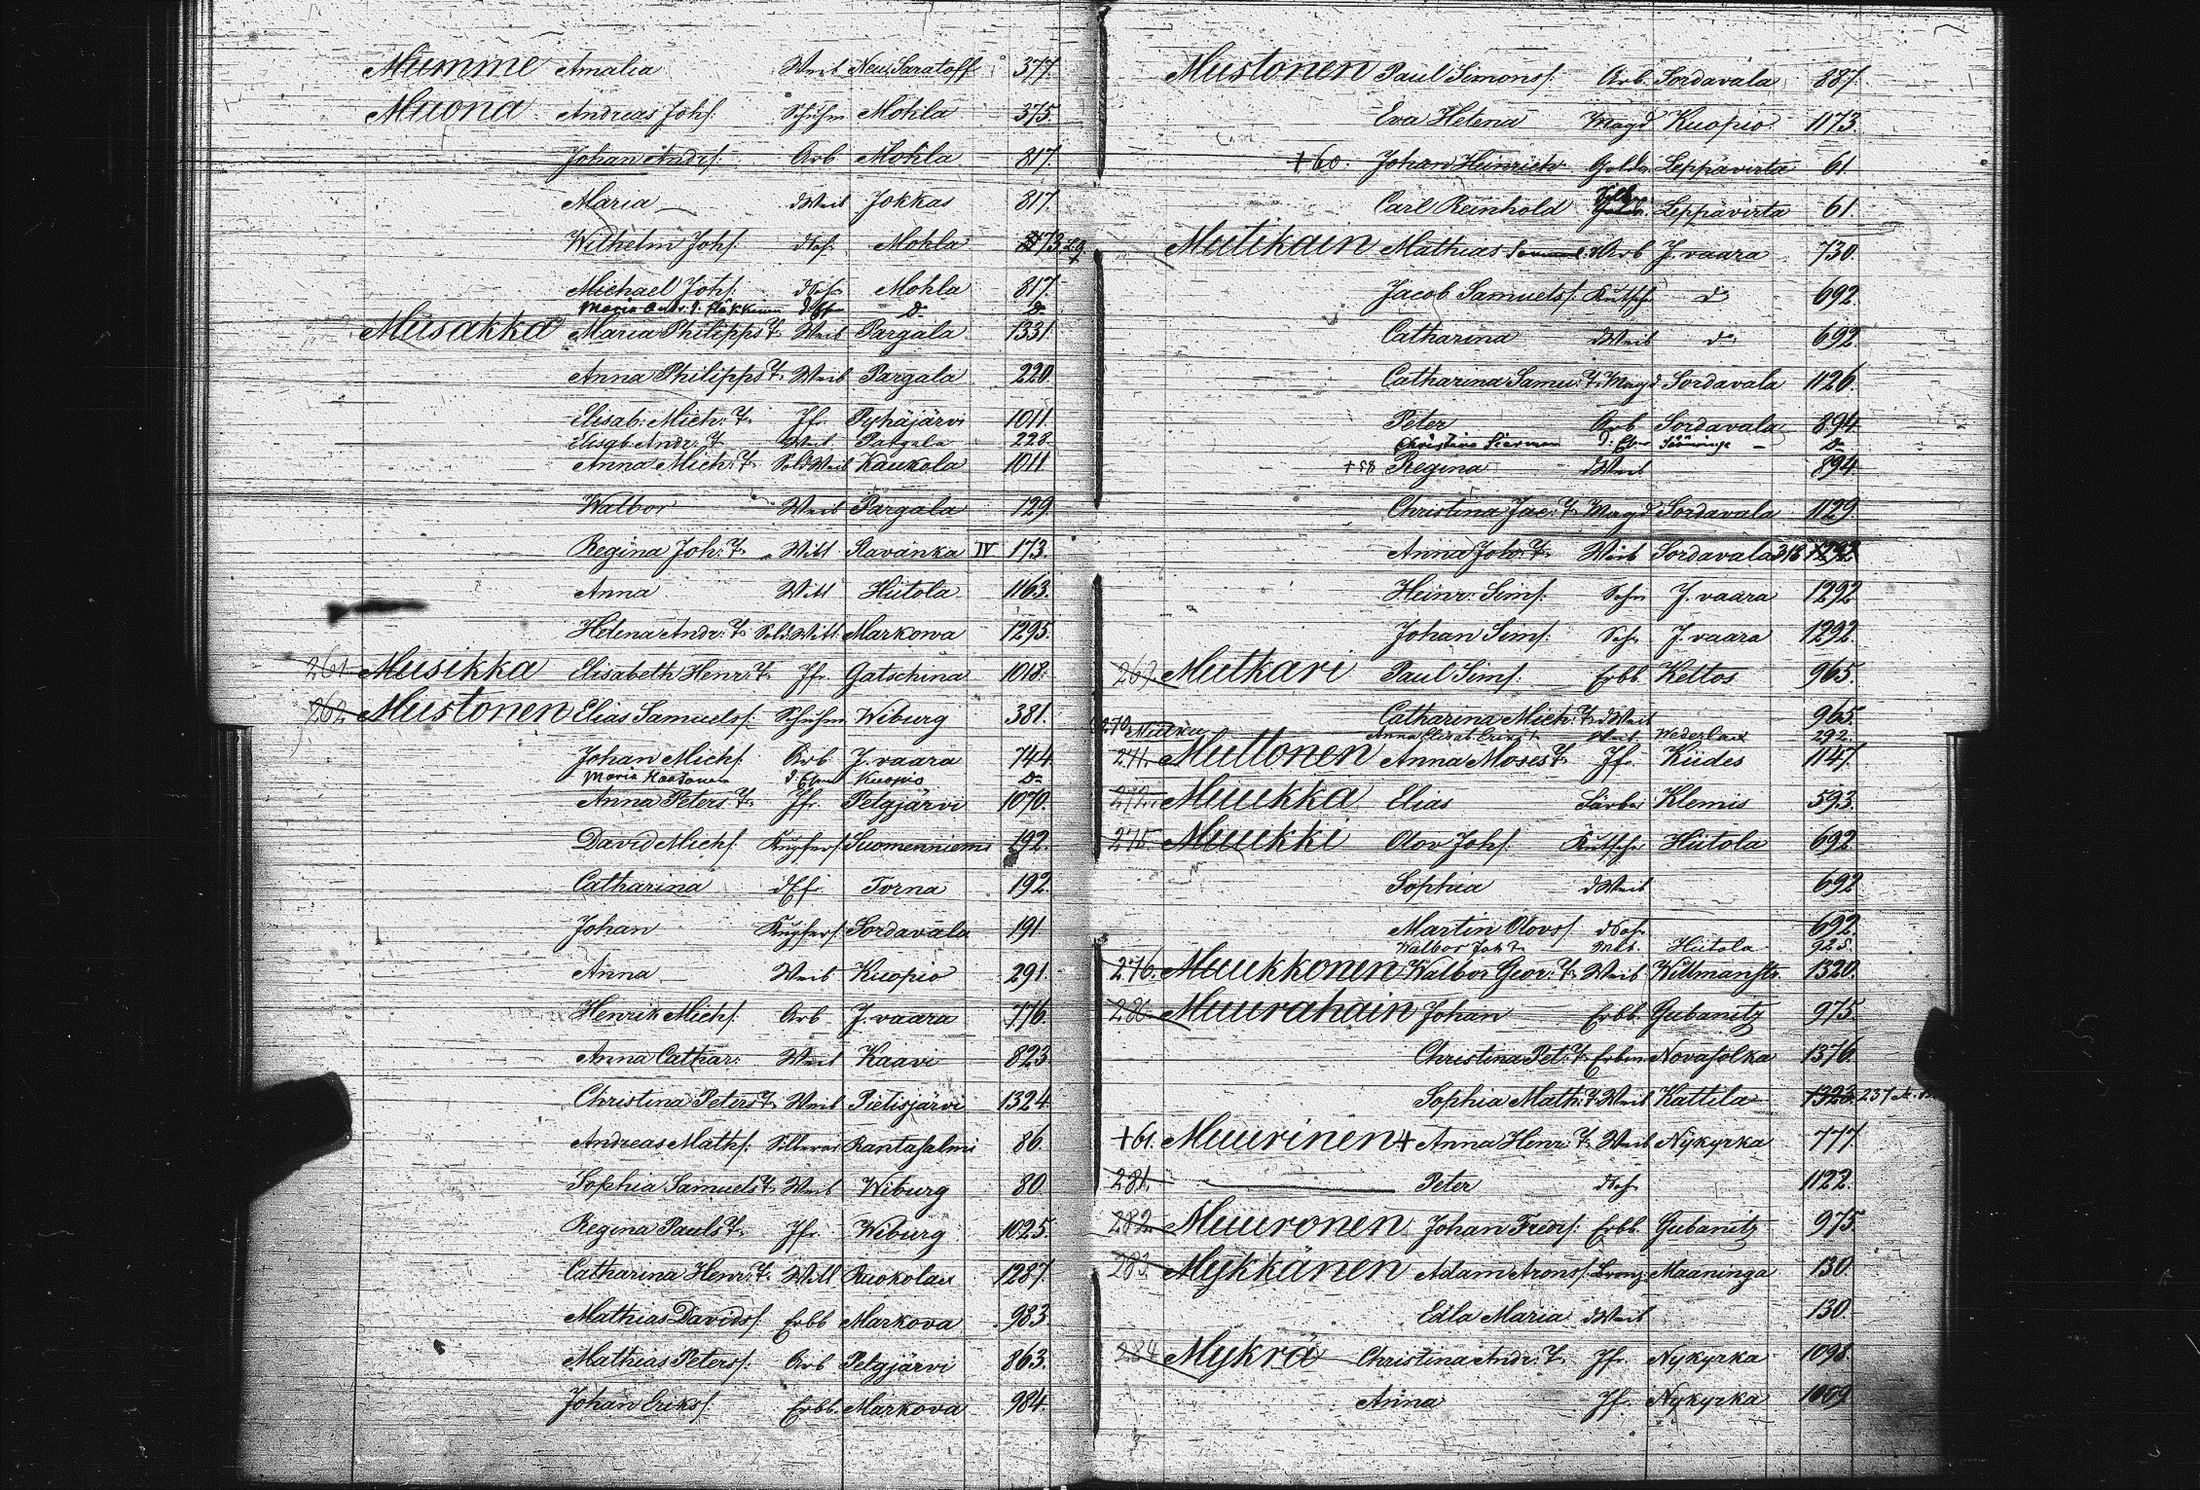 Mumme Amalia Weib Neu Saratoff 377.
Muona Andreas Johs. Schuhm Mohla 375.
Johan Andrs. Arb Mohla 817.
Maria d Weib Jokkas 817.
Wilhelm Johs. d Soh. Mohla 173
Michael Johs. d Soh Mohla 817.
Maria
Musakka Maria Philipps T. Weib Pargala 1331
Anna Philipps T. Weib Pargala 220.
Elisab. Mich. T. Jfr. Pyhäjärvi 1011.
Elisab. Andr. T. Weib Pargala 228.
Anna Mich. T. Sold Weib Kaukola 1011
Walbor Weib Pargala 129.
Regina Joh. T. Witt Slavänka IV 173.
Anna Witt Hiitola 1163.
Helena Andr. T. Sold. Witt. Markowa 1295.
261. Musikka Elisabeth Henr. T. Jfr. Gatschina 1018.
262 Mustonen Elias Samuels. Schuhm Wiburg 381.
Johan Michs. Arb J. vaara 744
Maria d. Ehew Kuopio Do
Anna Peters T. Jfr. Pelgjärvi 1070.
David Michs. Kupfers. Suomenniemi 192.
Catharina d Ef. Torna 192.
Johan Kupfers. Sordavala 191.
Anna Weib Kuopio 291.
Henrik Michs. Arb J. vaara 776.
Anna Cathar. Weib Kaavi 823
Christina Peters T. Weib Pielisjärvi 1324.
Andreas Maths. Silberar Rantasalmi 86.
Sophia Samuels T. Weib Wiburg 80.
Regina Pauls T. Jfr. Wiburg 1025.
Catharina Henr. T. Witt Ruokolax 1287.
Mathias Davids. Erbb Markova 983
Mathias Peterss. Arb Pelgjärvi 863.
Johan Eriks. Erbb. Markova 984.
Mustonen Paul Simons. Arb. Sordavala 887.
Eva Helena Magd Kuopio 1173.
+ 60. Johan Heinrich Golda. Leppävirta 61.
Carl Reinhold Leppävirta 61.
Mutikain Mathias Arb J. vaara 730.
Jacob Samuels. Kutsch. do 692
Catharina d Weib do 692
Catharina Samu. T. Magd Sordavala 1126.
Peter Arb Sordavala 894.
Christina d. Ehew Do
+ 58 Regina d Weib 894.
Christina Jac. T. Magd Sordavala 1129.
Anna Joh. T. Weib Sordavala 318
Heinr. Sims. Sohn J. vaara 1292
Johan Sims. Soh. J. vaara 1292.
269. Mutkari Paul Sims. Erbb Keltos 965.
Catharina Mich. T. d Weib 965.
270. Mutka Anna Elisab. Weib. Wederlax 292.
271. Muttonen Anna Moses T. Jfr. Kiides 1147.
272. Muukka Elias Färber Klemis 593.
275. Muukki Olov Johs. Kutscher Hiitola 692
Sophia d Weib 692
Martin Olovs. d Soh. 692.
Walbor Joh T. Weib. Hiitola 925.
276. Muukkonen Walbor Geor. T. Weib Willmanstr. 1320.
280. Muurahain Johan Erbb. Gubanitz 975.
Christina Pet. T. Erben Novasolka 1376.
Sophia Math. T. Weib Kattila 1323. 237
+ 61. Muurinen + Anna Henr. T. Weib Nykyrka 777.
281. Peter d Soh. 1122.
282. Muuronen Johan Freds. Erbb. Gubanitz 975
283. Mykkänen Adam Arons. Bronz. Maaninga 130.
Edla Maria d Weib 130.
284. Mykrä Christina Andr. T. Jfr. Nykyrka 1098.
Anna Jf. Nykyrka 1009.